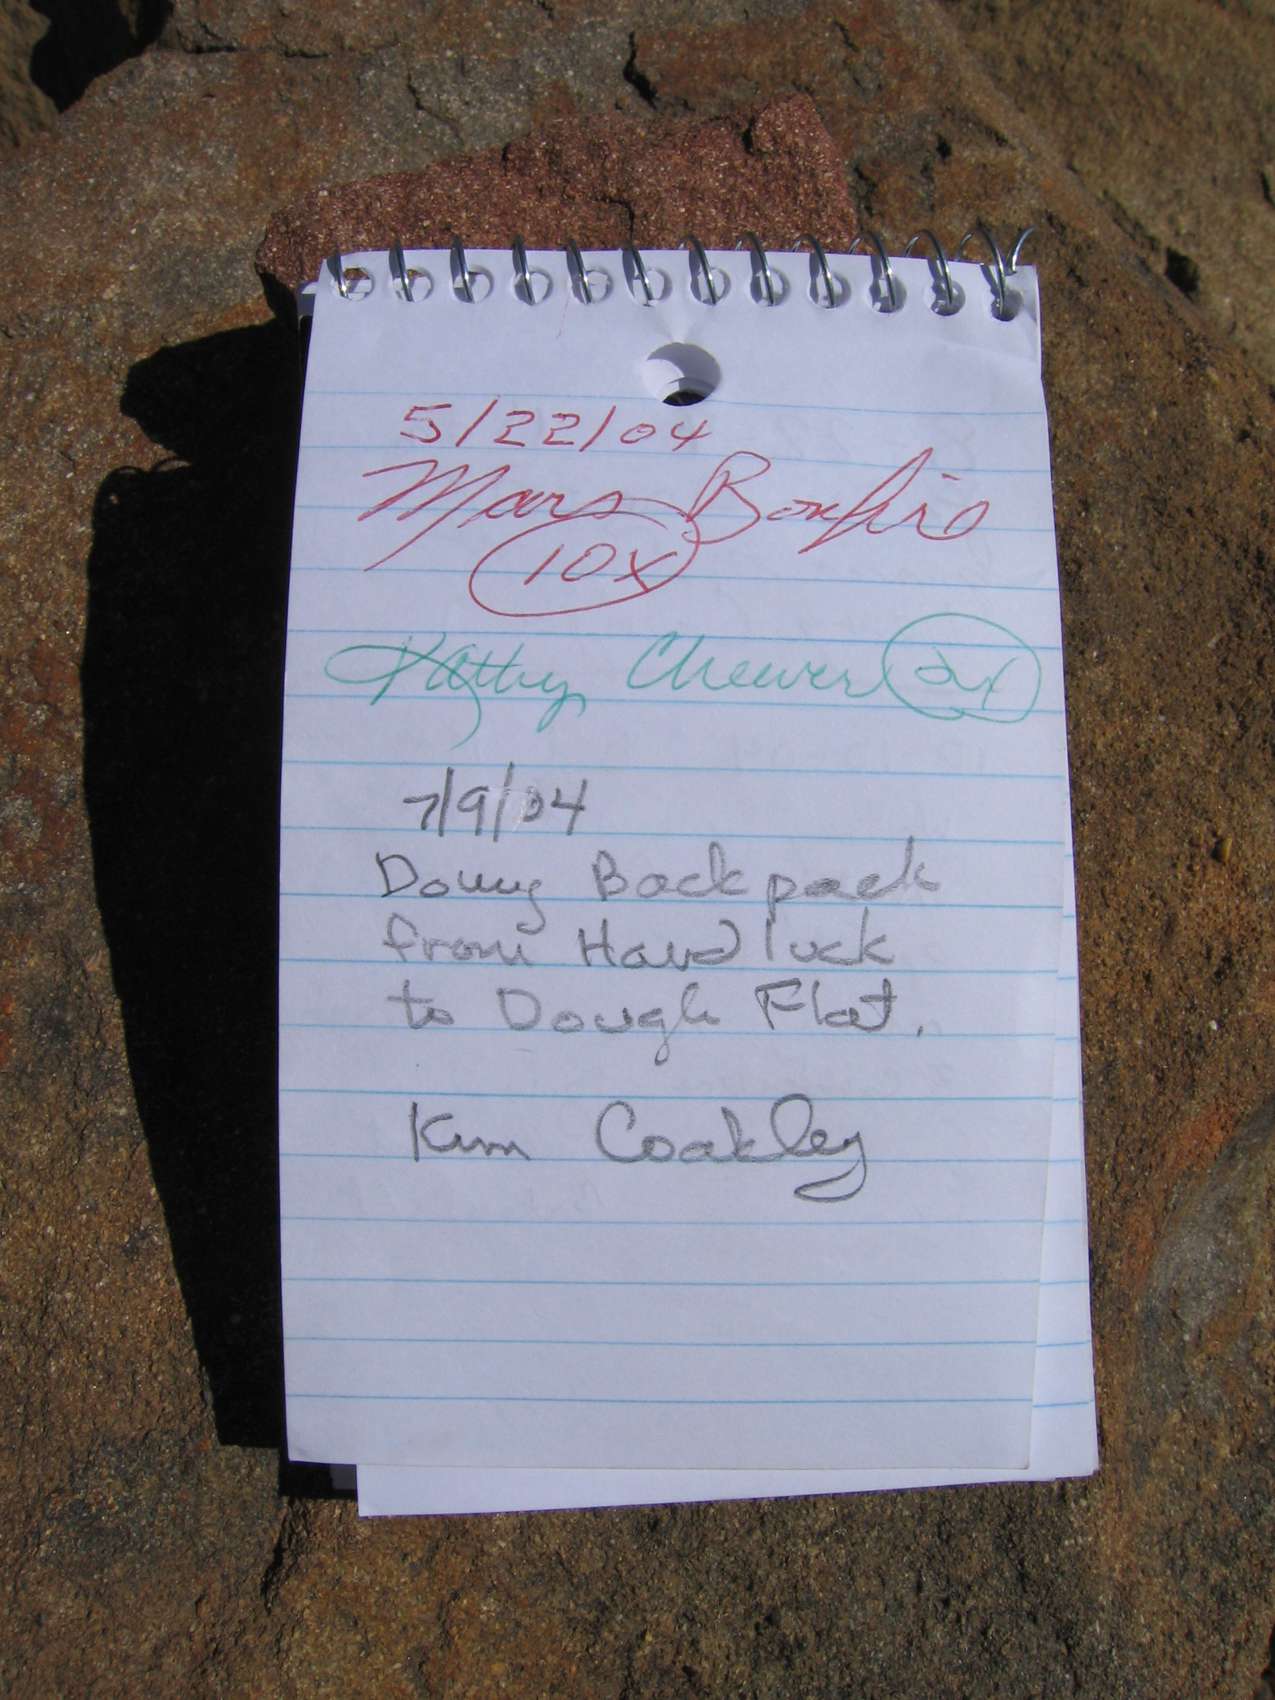 5/22/04
Mars Bonfire
10x
Kathy Cheever 2x
7/9/04
Doing Backpack
from Hard luck
to Dough Flat.
Kim Coakley